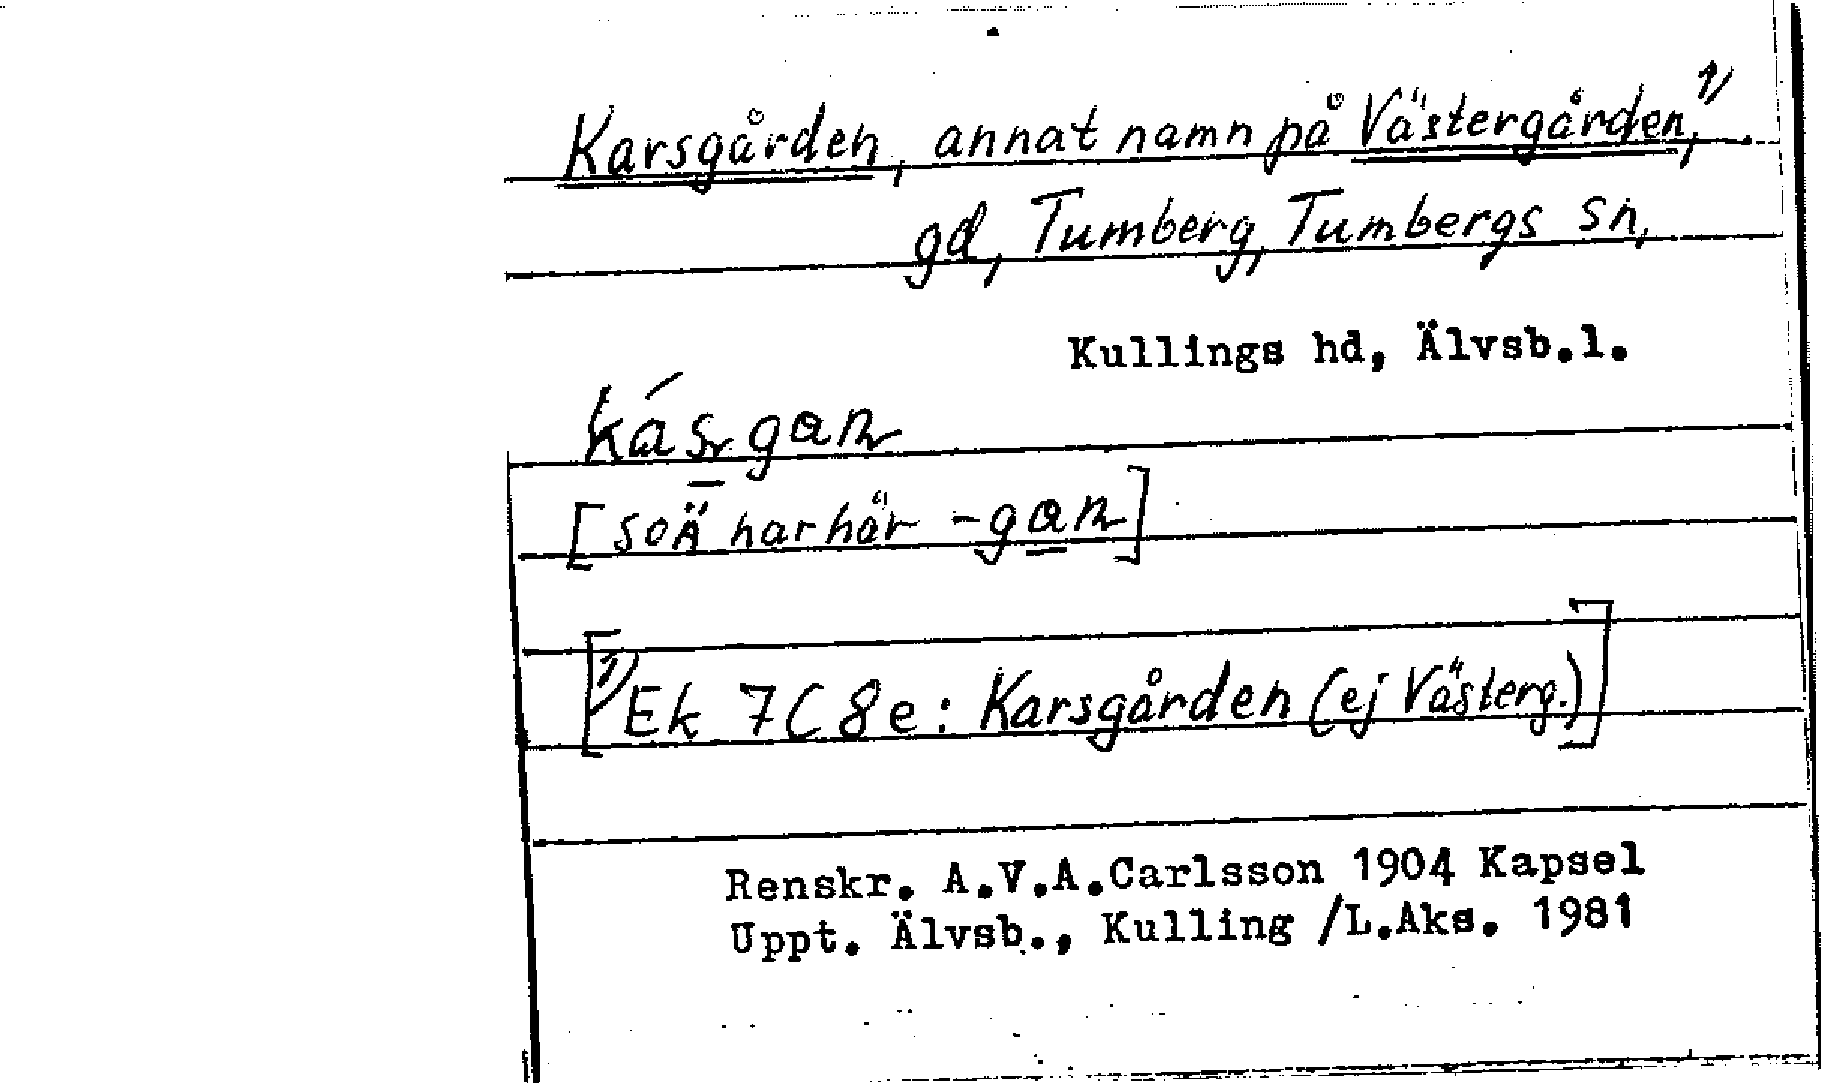 Karsgården, annat namn på Västergården,¹⁾
gd, Tumberg, Tumbergs sn,
Kullings hd, Älvsb.l.
[SOÄ har här -gan]
[¹⁾Ek 7C 8e: Karsgården (ej Västerg.)]
Renskr. A.V.A.Carlsson 1904 Kapsel
Uppt. Älvsb., Kulling /L.Aks. 1981